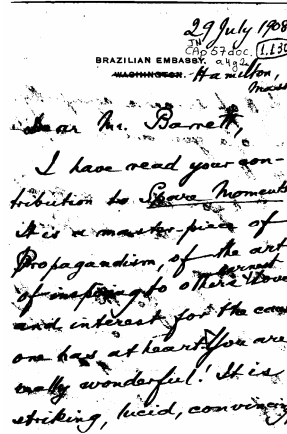 29 July 1908
JN
CAp 57 doc.
a4g2
BRAZILIAN EMBASSY.
WASHINGTON. Hamilton,
Mass
Dear Mr. Barrett,
I have read your con-
tribution to Spare Moments
It is a master-piece of
Propagandism, of the art
of inspiring to others love
earnest
and interest for the cause
one has at heart. You are
really wonderful! It is
striking, lucid, convincing,